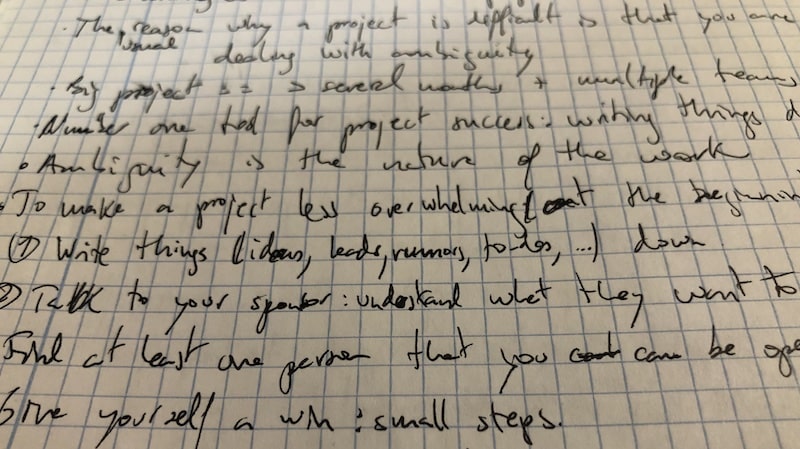 · The reason why a project is difficult is that you are
usual dealing with ambiguity
· Big project == > several months + multiple teams
· Number one tool for project success: writing things d
· Ambiguity is the nature of the work
· To make a project less overwhelming (at the beginnin
① Write things (ideas, leads, rumors, to-dos, ...) down
② Talk to your sponsor: understand what they want to
Find at least one person that you can be ope
Give yourself a win: small steps.